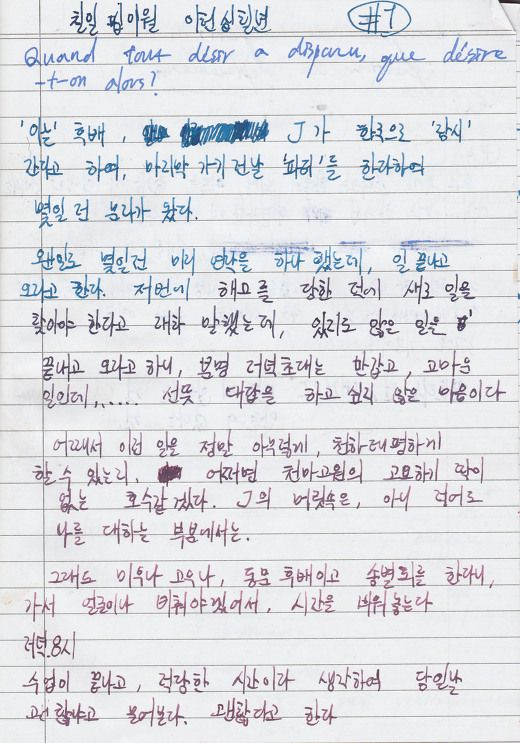 친일 팔이월 이천십칠년 #1
Quand tout désir a disparu, que désire
-t-on alors?
'이놈' 후배, J가 한국으로 '잠시'
간다고 하여, 마지막 가기 전날 '파티'를 한다하여
몇일 전 문자가 왔다.
왠일로 몇일전 미리 연락을 하나 했는데, 일 끝나고
오라고 한다. 저번에 해고를 당한 덕에 새로 일을
찾아야 한다고 대화 말했는데, 있지도 않은 일은
끝내고 오라고 하니, 분명 저녁초대는 반갑고, 고마운
일인데,..... 선뜻 대답을 하고 싶지 않은 마음이다
어째서 이런 일을 정말 아무렇게, 천하태평하게
할 수 있는지, 어쩌면 천마고원의 고요하기 짝이
없는 호수같겠다. J의 머릿속은, 아니 적어도
나를 대하는 부분에서는.
그래도 미우나 고우나, 동문 후배이고 송별회를 한다니,
가서 얼굴이나 비춰야겠어서, 시간을 비워놓는다
저녁.8시
수업이 끝나고, 적당한 시간이라 생각하여 당일날
괜찮냐고 물어본다. 괜찮다고 한다